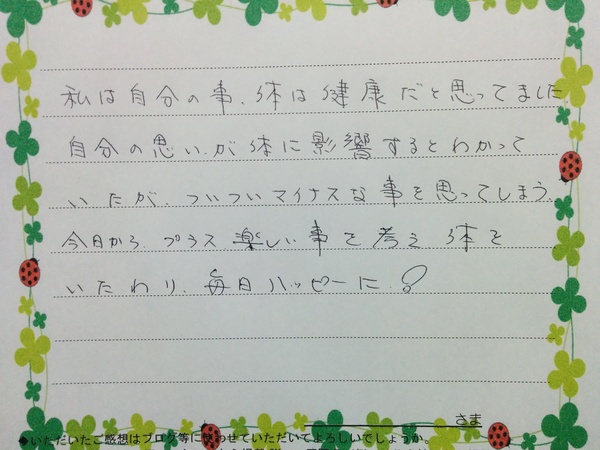 私は自分の事、体は健康だと思ってました
自分の思いが体に影響するとわかって
いたが、ついついマイナスな事を思ってしまう。
今日から、プラス楽しい事を考え体を
いたわり、毎日ハッピーに!
さま
●いただいたご感想はブログ等に使わせていただいてよろしいでしょうか。